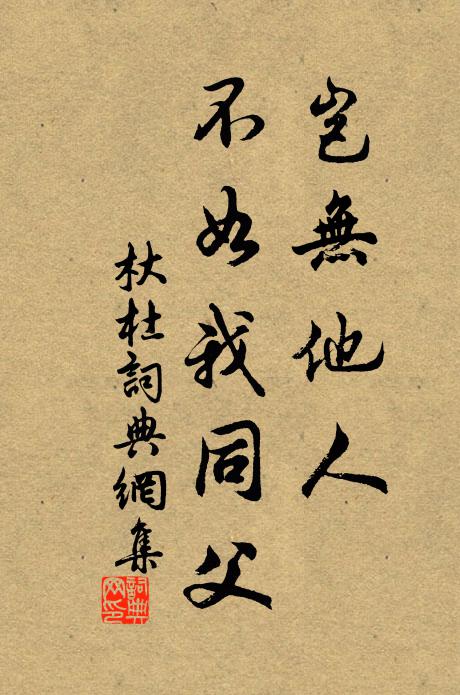 豈無他人
不如我同父
杕杜詞典網集
詞典
网印